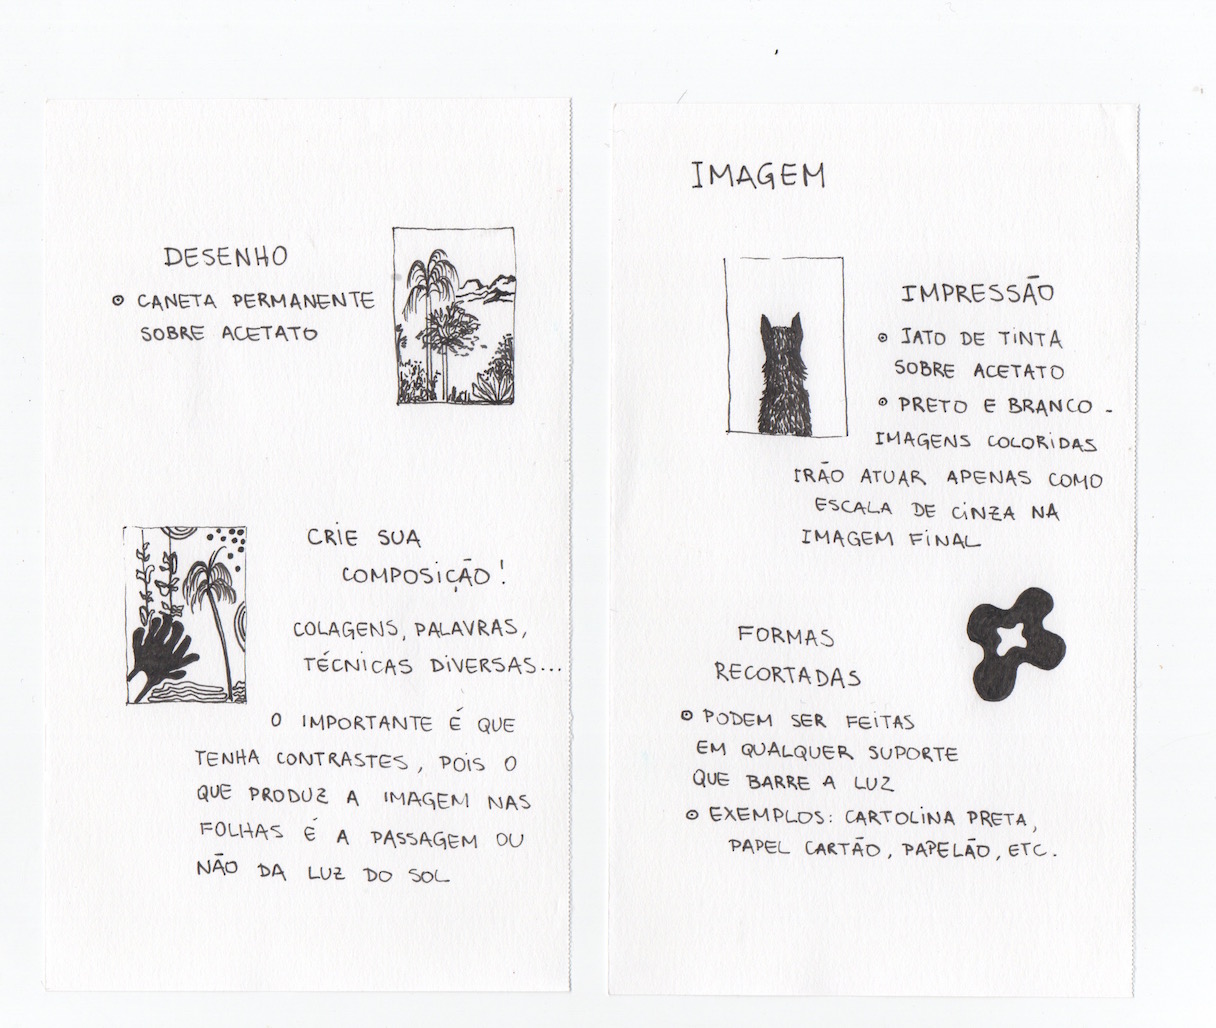 DESENHO
CANETA PERMANENTE
SOBRE ACETATO
CRIE SUA
COMPOSIÇÃO!
COLAGENS, PALAVRAS,
TÉCNICAS DIVERSAS...
O IMPORTANTE É QUE
TENHA CONTRASTES, POIS O
QUE PRODUZ A IMAGEM NAS
FOLHAS É A PASSAGEM OU
NÃO DA LUZ DO SOL
IMAGEM
IMPRESSÃO
JATO DE TINTA
SOBRE ACETATO
PRETO E BRANCO -
IMAGENS COLORIDAS
IRÃO ATUAR APENAS COMO
ESCALA DE CINZA NA
IMAGEM FINAL
FORMAS
RECORTADAS
PODEM SER FEITAS
EM QUALQUER SUPORTE
QUE BARRE A LUZ
EXEMPLOS: CARTOLINA PRETA,
PAPEL CARTÃO, PAPELÃO, ETC.